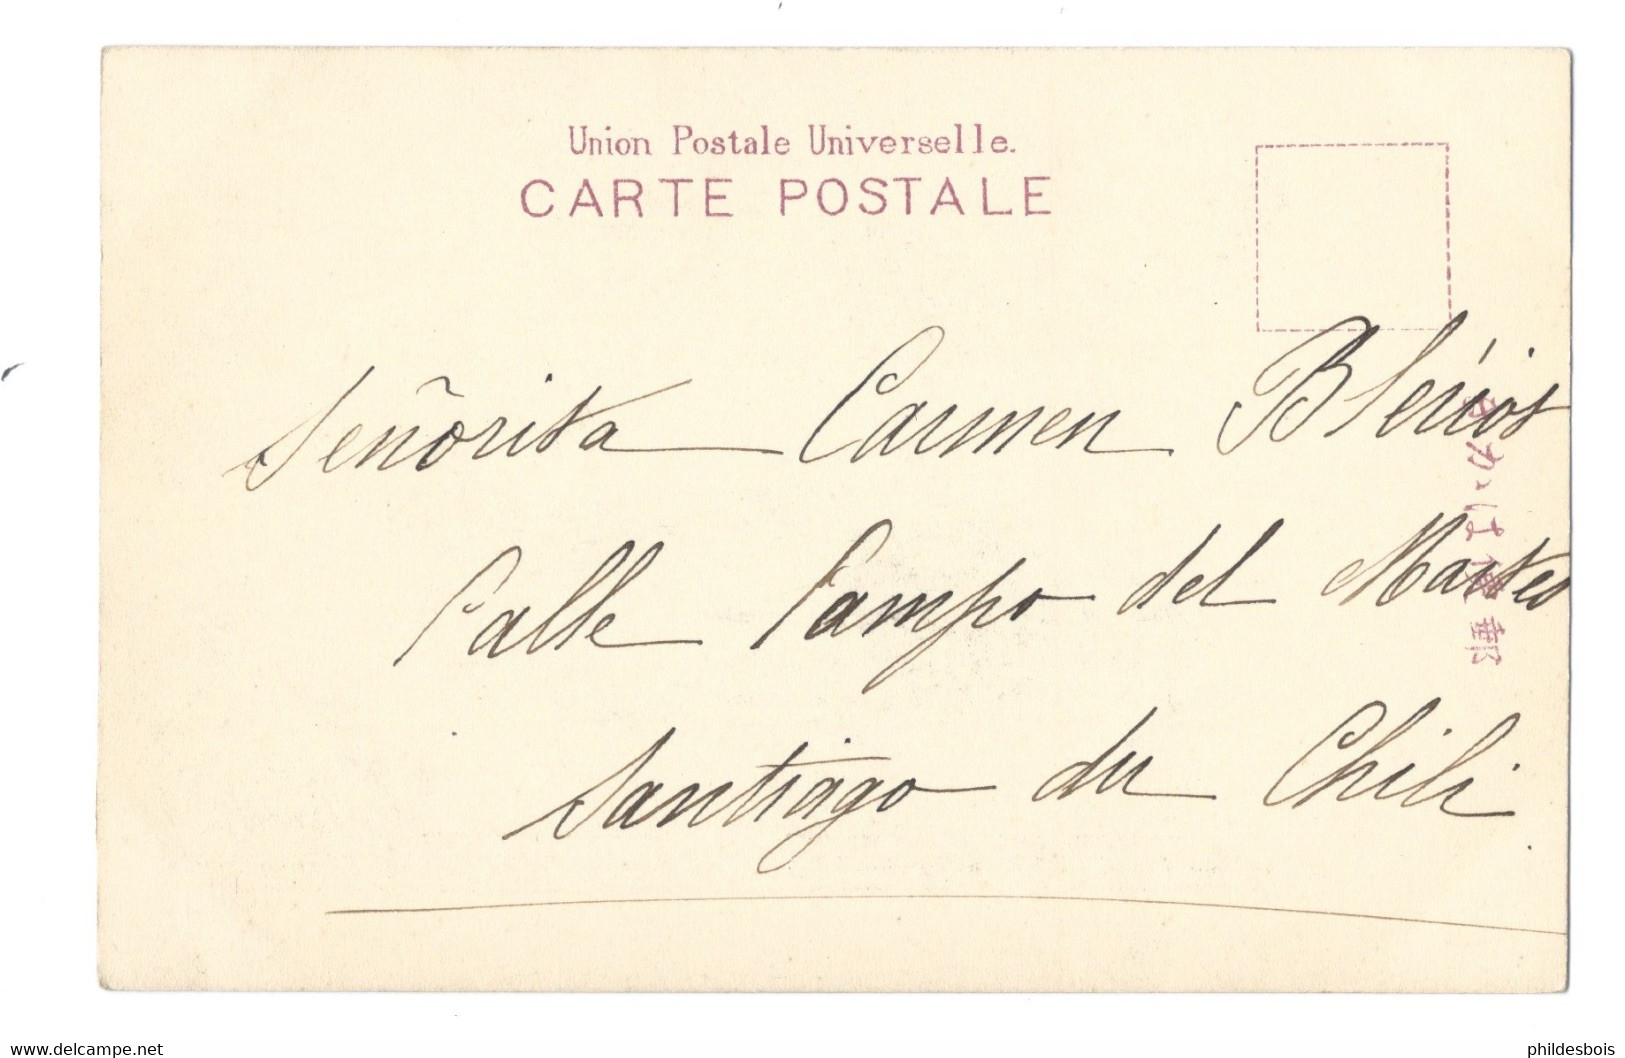 Union Postale Universelle.
CARTE POSTALE
Señorita Carmen
Calle Campo del Martes
Santiago du Chili
郵便はかき
www.delcampe.net
phildesbois